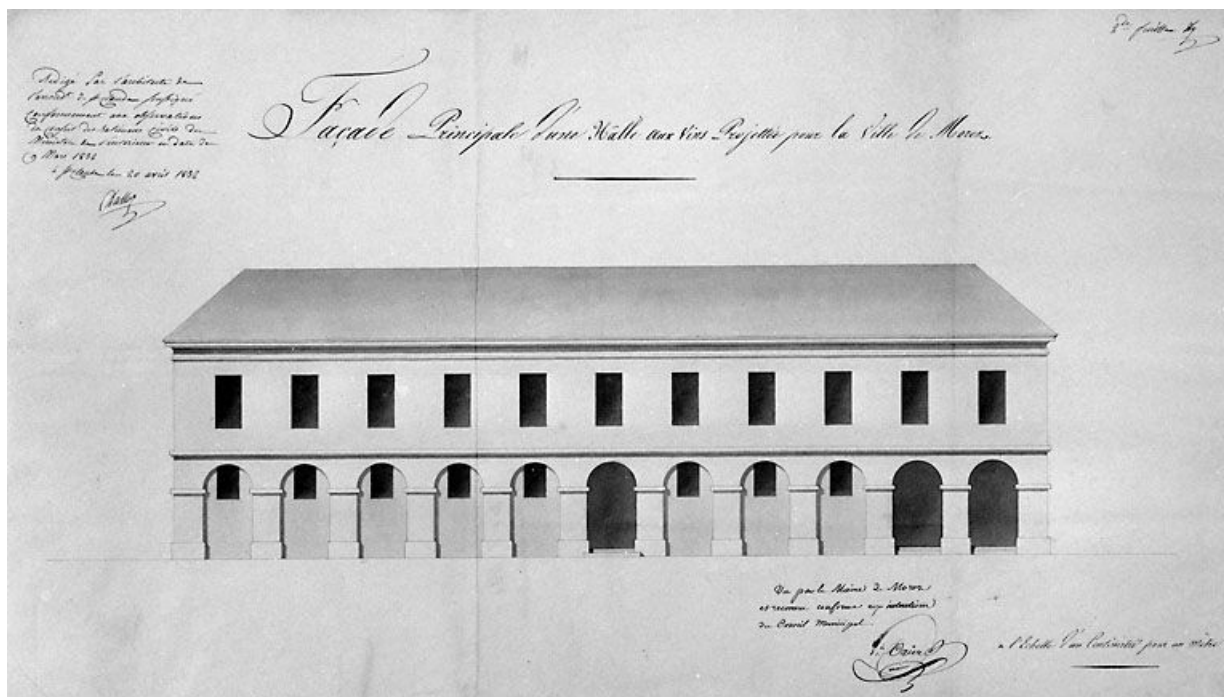 2de feuille
Rédigé par l'architecte de
l'arrondt de St Claude soussigné
conformément aux observations
du Conseil des Bâtimens Civils du
Ministère de l'intérieur en date du
9 Mars 1832
à St Claude le 20 avril 1832
Façade Principale d'une Halle aux Vins Projettée pour la Ville de Morez
Vu par le Maire de Morez
et reconnu conforme aux intentions
du Conseil Municipal.
a l'Echelle d'un Centimètre pour un Mètre